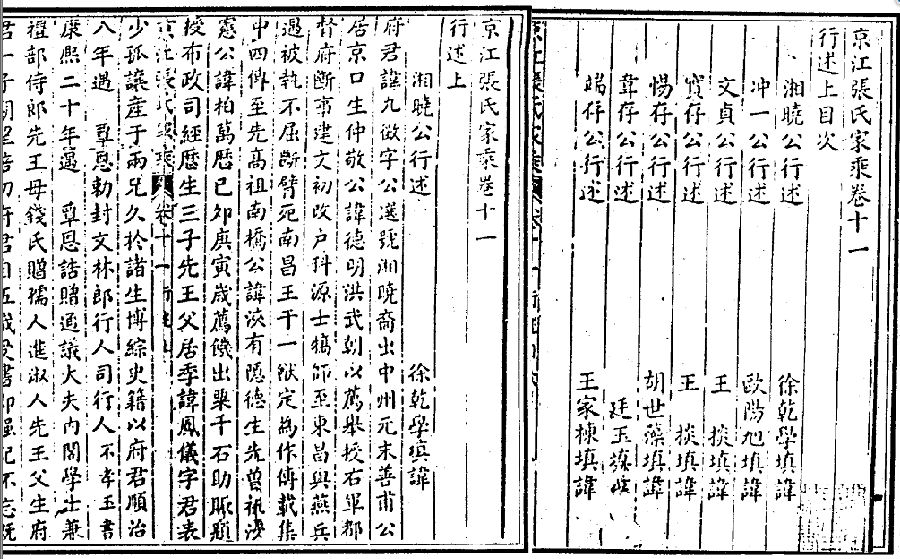 京江張氏家乘卷十一
行述上目次
湘曉公行述 徐乾學填諱
冲一公行述 歐陽旭填諱
文貞公行述 王掞填諱
實存公行述 王掞填諱
惕存公行述 胡世藻填諱
韋存公行述 廷玉填諱
端存公行述 王家棟填諱
京江張氏家乘卷十一
行述上
湘曉公行述 徐乾學填諱
府君諱九徵字公選號湘曉裔出中州元末善甫公
居京口生仲敬公諱德明洪武朝以薦舉授右軍都
督府斷事建文初改戶科源士犒師至東昌與燕兵
遇被執不屈斷臂死南昌王于一猷定為作傳載集
中四傳至先高祖南橋公諱浹有隱德生先曾祖
憲公諱柏萬曆己卯庚寅歲薦饑出粟千石助賑題
授布政司經曆生三子先王父居季諱鳳儀字君表
京江張氏家乘 卷十一
少孤讓產于兩兄久於諸生博綜史籍以府君順治
八年遇 覃恩勅封文林郎行人司行人不孝玉書
康熙二十年遇 覃恩誥贈通議大夫內閣學士兼
禮部侍郎先王母錢氏贈孺人進淑人先王父生府
君一子 府君自五歲受書即强記不忘既